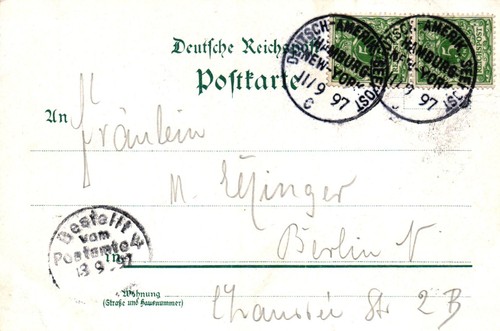 Deutsche Reichspost
Postkarte
DEUTSCH-AMERIK. SEEPOST
HAMBURG
NEW-YORK
11/9 97
C
DEUTSCH-AMERIK. SEEPOST
HAMBURG
NEW-YORK
11/9 97
C
An Fräulein
M.
Berlin N
in
Bestellt
vom
Postamte 4
13 9 97
Wohnung
(Straße und Hausnummer)
Chaussée Str 2 B